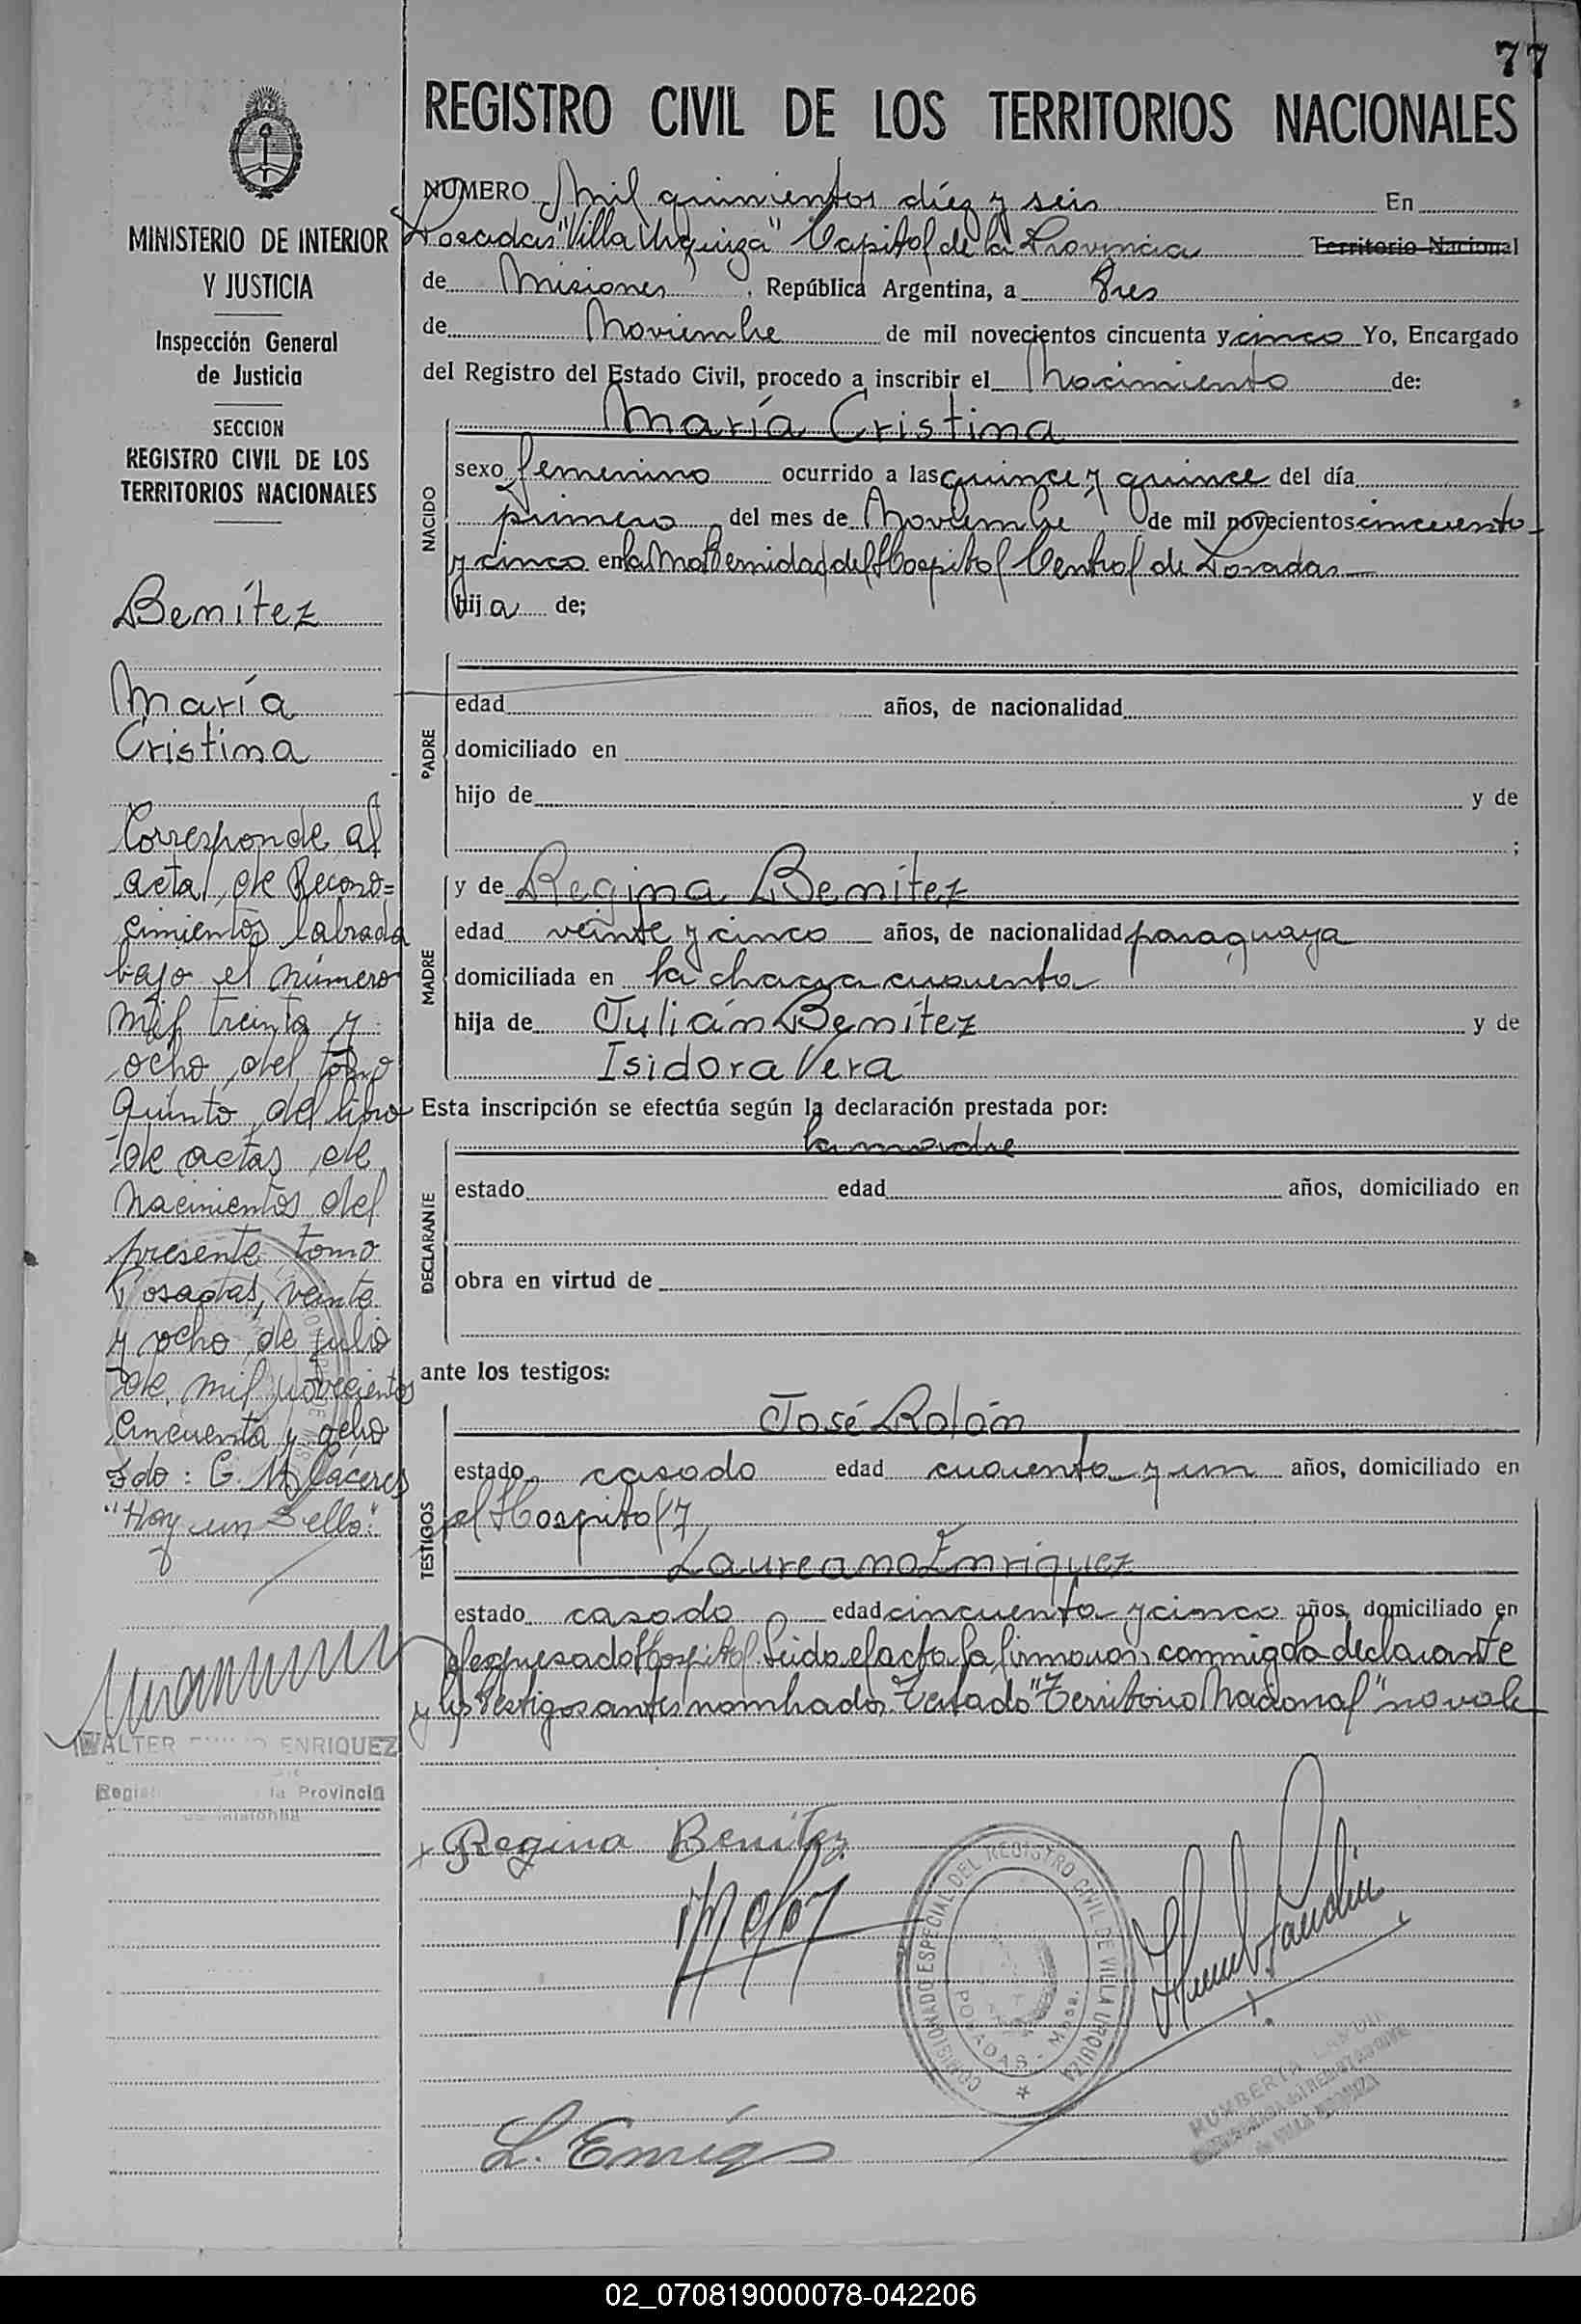 77
REGISTRO CIVIL DE LOS TERRITORIOS NACIONALES
MINISTERIO DE INTERIOR
Y JUSTICIA
Inspección General
de Justicia
SECCION
REGISTRO CIVIL DE LOS
TERRITORIOS NACIONALES
Benítez
María
Cristina
Corresponde al
acta de Recono=
cimientos labrada
bajo el número
mil treinta y
ocho del tomo
Quinto del libro
de actas de
Nacimientos del
presente tomo
Posadas, veinte
y ocho de julio
de mil novecientos
cincuenta y ocho
Fdo: C. M. Cáceres
"Hay un Sello."
WALTER ENRIQUEZ
la Provincia
NUMERO Mil quinientos diez y seis En
Posadas "Villa Urquiza" Capital de la Provincia Territorio Nacional
de Misiones, República Argentina, a Tres
de Noviembre de mil novecientos cincuenta y cinco Yo, Encargado
del Registro del Estado Civil, procedo a inscribir el Nacimiento de:
NACIDO
María Cristina
sexo femenino ocurrido a las quince y quince del día
primero del mes de Noviembre de mil novecientos cincuenta
y cinco en la Maternidad del Hospital Central de Posadas
hija de;
PADRE
edad años, de nacionalidad
domiciliado en
hijo de y de
;
MADRE
y de Regina Benítez
edad veinte y cinco años, de nacionalidad paraguaya
domiciliada en la chacra cuarenta
hija de Julián Benítez y de
Isidora Vera
Esta inscripción se efectúa según la declaración prestada por:
DECLARANTE
la madre
estado edad años, domiciliado en
obra en virtud de
ante los testigos:
TESTIGOS
José Rolón
estado casado edad cuarenta y un años, domiciliado en
el Hospital y
Laureano Enriquez
estado casado edad cincuenta y cinco años, domiciliado en
el expresado Hospital. Leida el acta la firmaron conmigo la declarante
y los testigos antes nombrados. Testado "Territorio Nacional" no vale
Regina Benítez
COMISIONADO ESPECIAL DEL REGISTRO CIVIL DE VILLA URQUIZA
POSADAS - Mnes.
L. Enriq
02_070819000078-042206